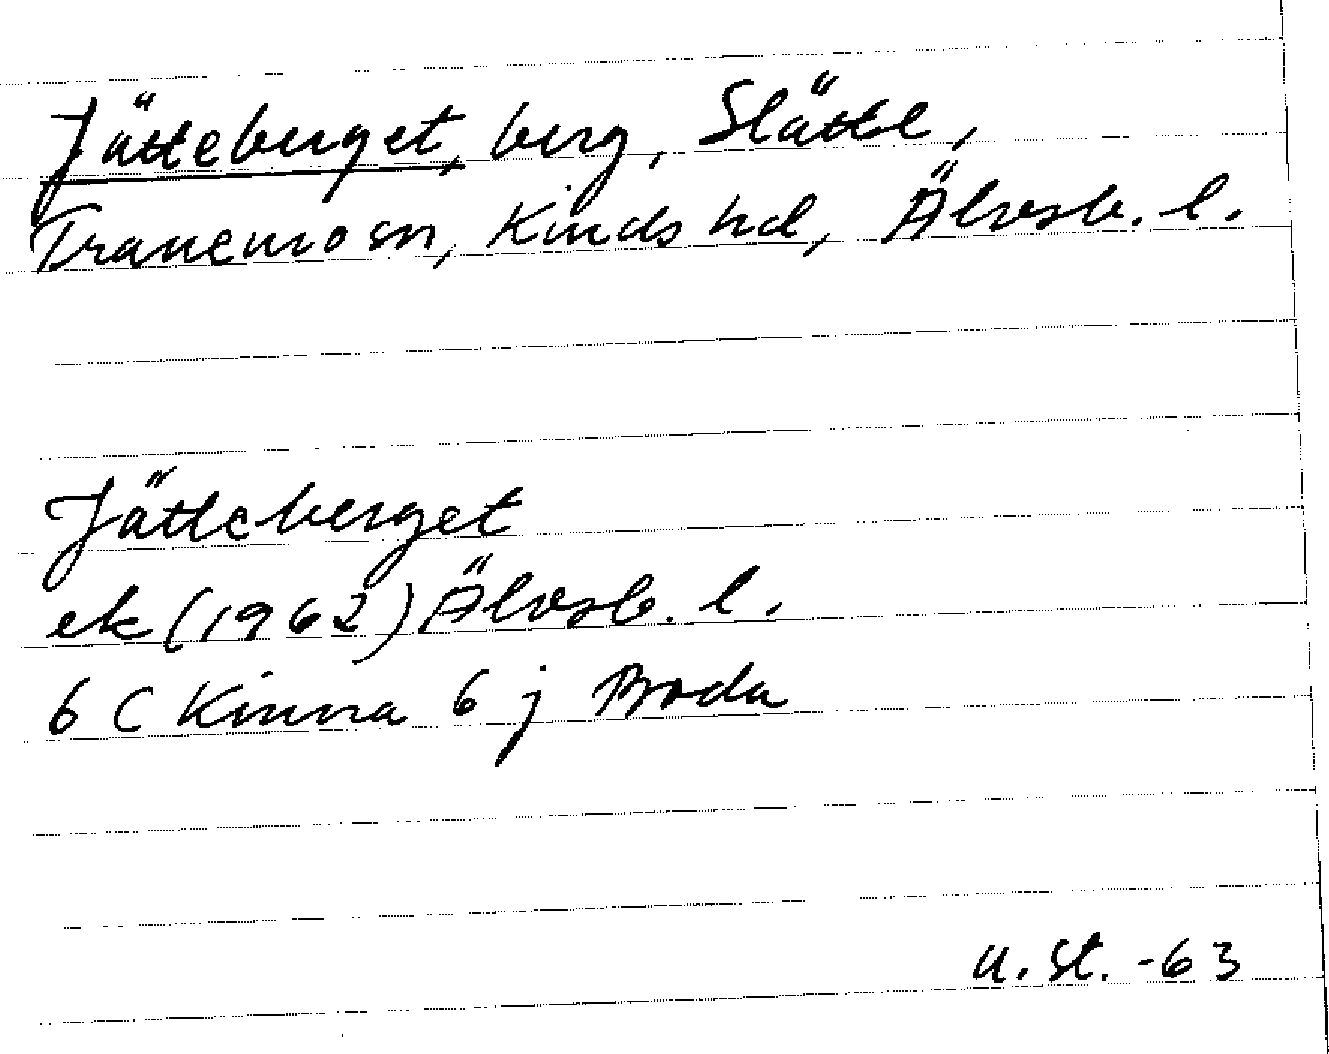 Jätteberget, berg, Slättl,
Tranemo sn, Kinds hd, Älvsb. l.
Jätteberget
ek (1962) Älvsb. l.
6 C Kinna 6 j Boda
U. St. -63